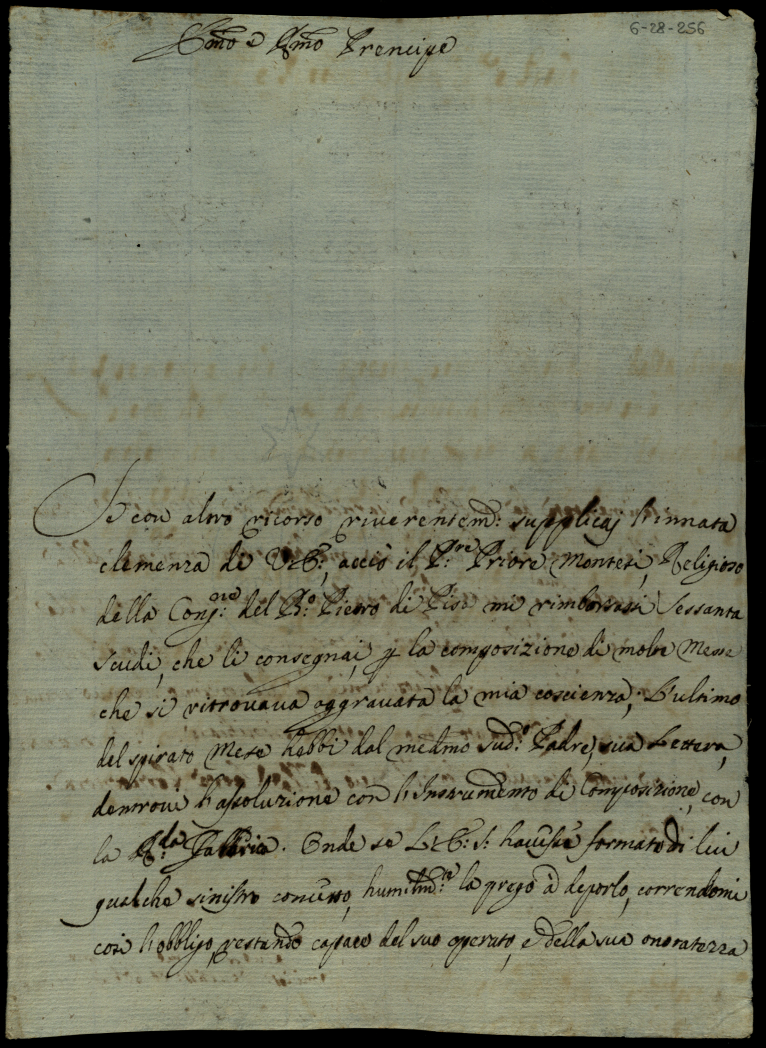 6-28-256
Emo e Rmo Prencipe
Se con altro ricorso riverentem: supplicaj l'innata
clemenza di V.E:, acciò il P:re Priore Montesi, Religioso
della Cong:ne del B:o Pietro di Pisa mi rimborsassi sessanta
scudi, che li consegnai, p la composizione di molte Messe
che si ritrovava aggravata la mia coscienza; L'ultimo
del spirato Mese hebbi dal medmo sud:o Padre, sua Lettera,
dentrovi l'assoluzione con l'Instrumento di Composizione, con
la R:da Fabbrica. Onde se L'E:V: s: havesse formato di lui
qualche sinistro concetto, humilm:te la prego à deporlo, correndomi
così l'obbligo, restando capace del suo operato, e della sua onoratezza